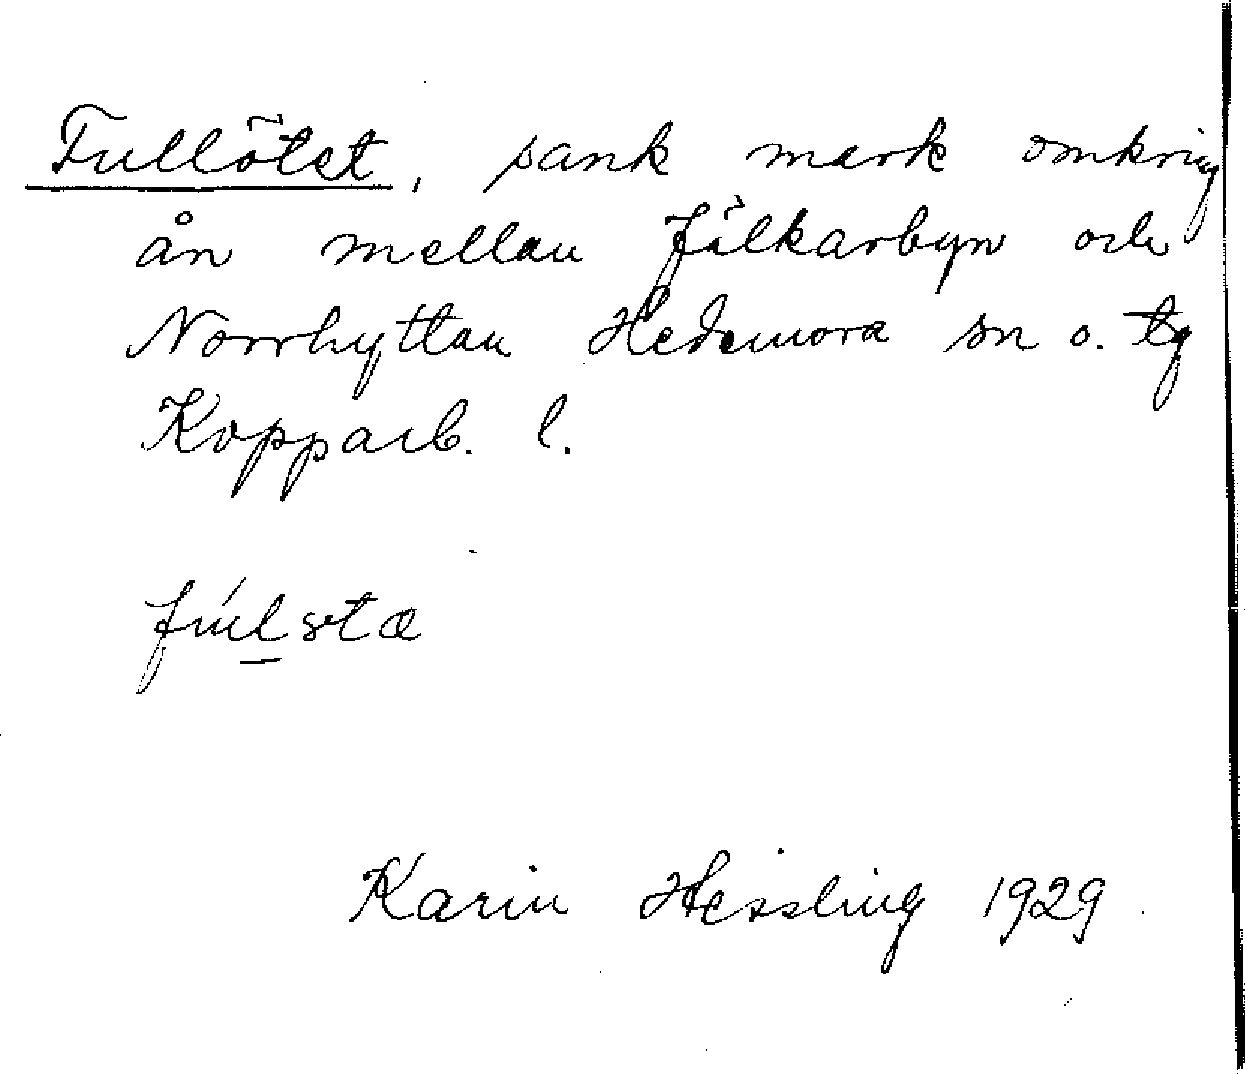 Fullötet, sank mark omkring
ån mellan Fälkarbyn och
Norrhyttan Hedemora sn o. tg
Kopparb. l.
Karin Hessling 1929